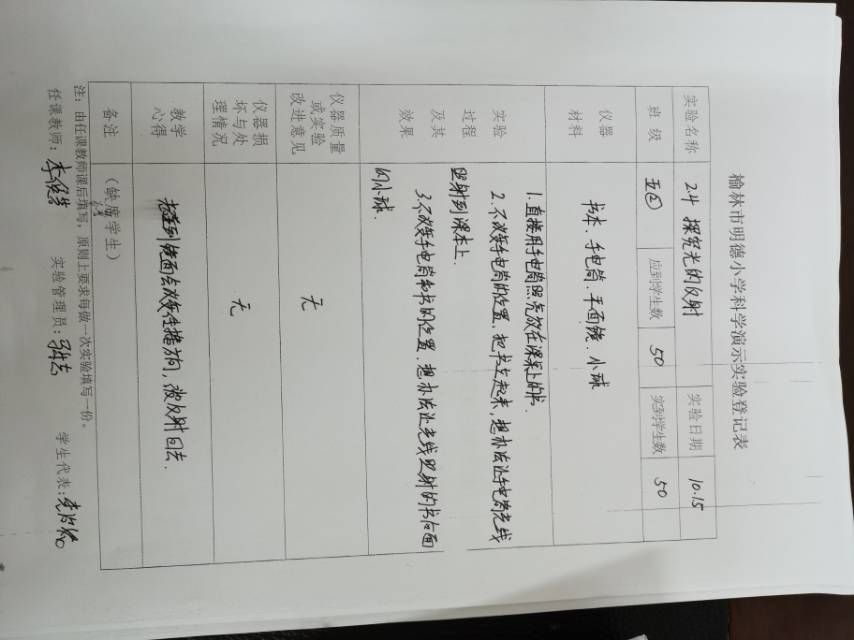 榆林市明德小学科学演示实验登记表
实验名称 2.4 探究光的反射 实验日期 10.15
班 级 五② 应到学生数 50 实到学生数 50
仪器
材料
书本、手电筒、平面镜、小球
实验
过程
及其
效果
1.直接用手电筒照亮放在课桌上的书.
2.不改变手电筒的位置,把书立起来,想办法让手电筒光线
照射到课本上.
3.不改变手电筒和书的位置,想办法让光线照射的书后面
的小球.
仪器质量
或实验
改进意见
无
仪器损
坏与处
理情况
无
教学
心得
光碰到镜面会改变传播方向,被反射回去.
备注
(缺席学生)
注:由任课教师课后填写,原则上要求每做一次实验填写一份。
任课教师: 实验管理员: 学生代表: